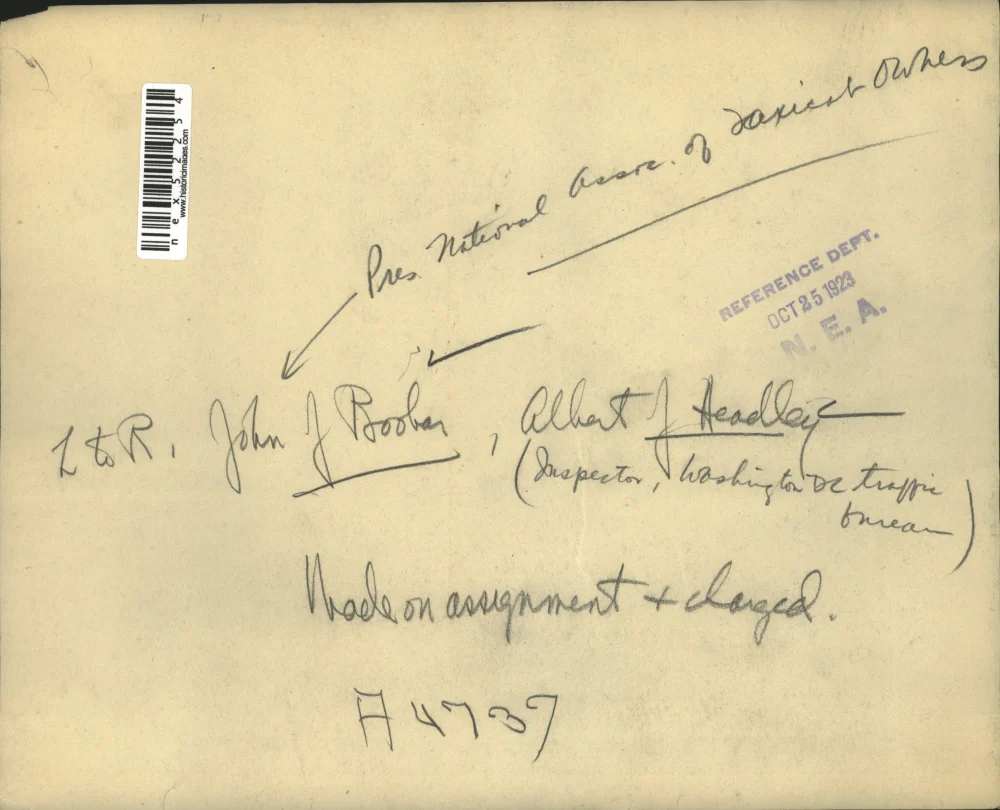 Pres. National Assoc. of Taxicab Owners
REFERENCE DEPT.
OCT 25 1923
N. E. A.
L to R, John J Boobar, Albert J Headley
(Inspector, Washington DC traffic
bureau)
Made on assignment + charged.
A4737
nex52254
www.historicimages.com